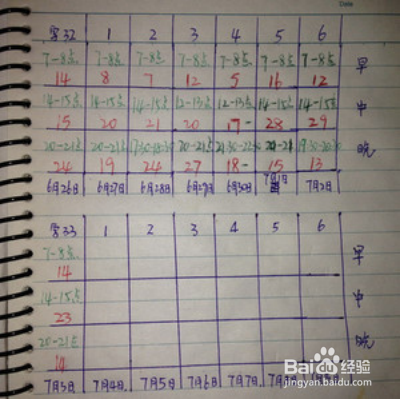 Date
孕32 1 2 3 4 5 6
7-8点 7-8点 7-8点 7-8点 7-8点 7-8点 7-8点 早
14 8 7 12 5 16 12
14-15点 14-15点 14-15点 12-13点 12-13点 14-15点 14-15点 中
15 20 21 20 17 28 29
20-21点 20-21点 17:30-18:30 20-21点 21:30-22:30 20-21 19:30-20:30 晚
24 19 24 27 18 15 13
6月26日 6月27日 6月28日 6月29日 6月30日 7月1日 7月2日
孕33 1 2 3 4 5 6
7-8点 早
14
14-15点 中
23
20-21点 晚
14
7月3日 7月4日 7月5日 7月6日 7月7日 7月8日
Baidu 百度 经验
jingyan.baidu.com